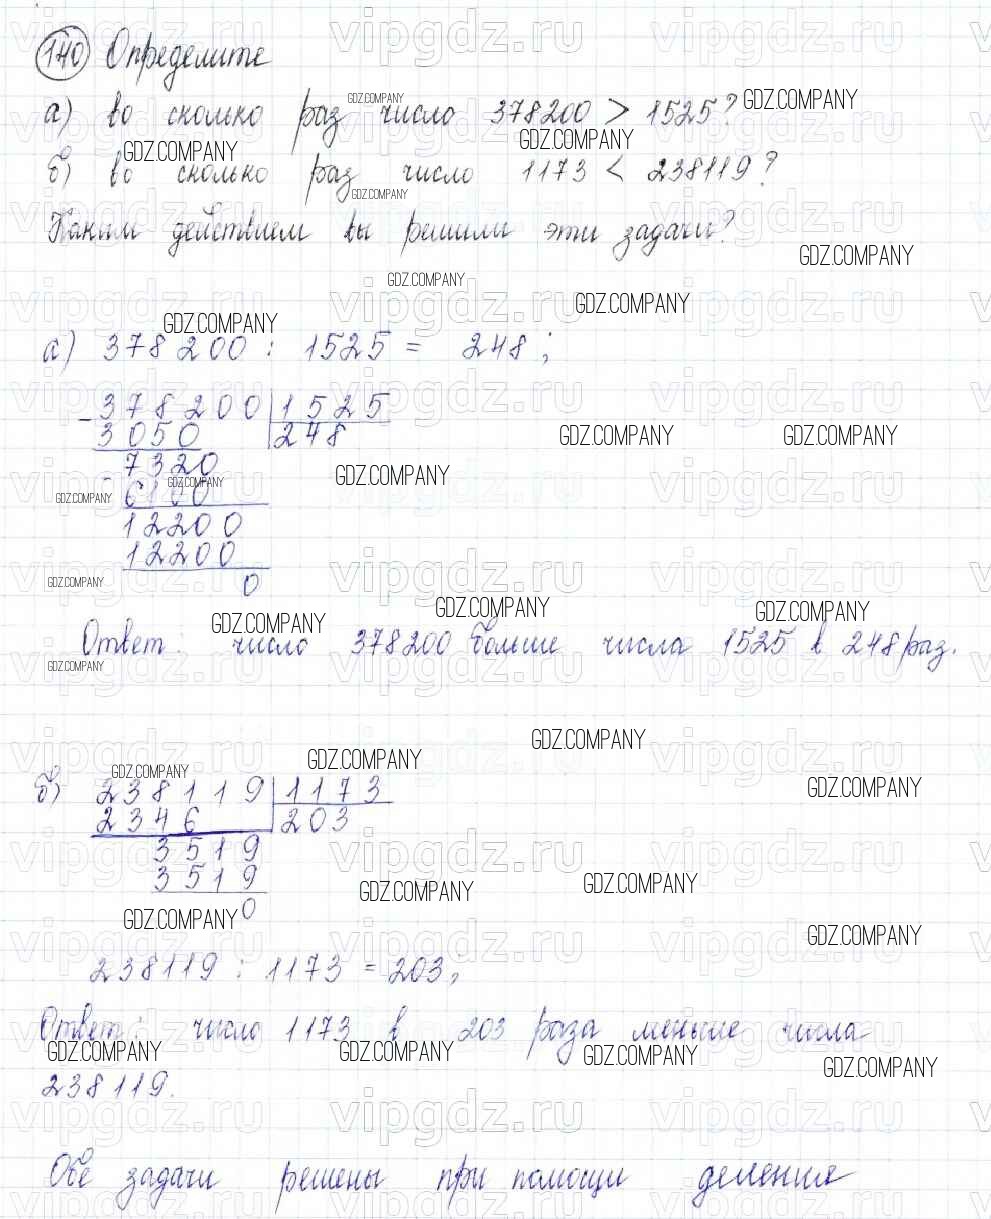 140 Определите
а) во сколько раз число 378200 > 1525?
б) во сколько раз число 1173 < 238119?
Каким действием вы решили эти задачи?
а) 378200 : 1525 = 248;
- 378200 | 1525
3050 | 248
7320
- 6100
12200
12200
0
Ответ: число 378200 больше числа 1525 в 248 раз.
б) 238119 | 1173
2346 | 203
3519
3519
0
238119 : 1173 = 203;
Ответ: число 1173 в 203 раза меньше числа
238119.
Обе задачи решены при помощи деления
vipgdz.ru
GDZ.COMPANY